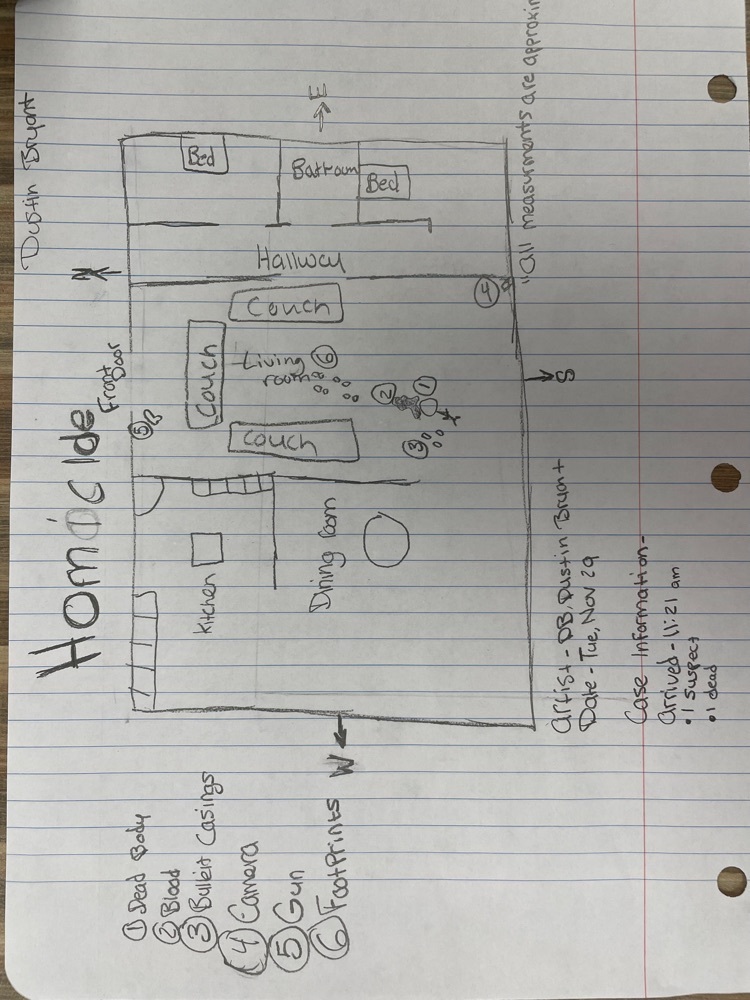 Dustin Bryant
Homicide
N
Front
Door
① Dead Body
② Blood
③ Bulleit Casings
④ Camera
⑤ Gun
⑥ FootPrints
W
Kitchen
Dining room
⑤
Couch
Couch
Couch
Living
room
⑥
②
①
③
④
Hallway
Bed
Bed
E
S
"All measurments are
Artist - DB, Dustin Bryant
Date - Tue, Nov 29
Case Information-
Arrived - 11:21 am
• 1 suspect
• 1 dead